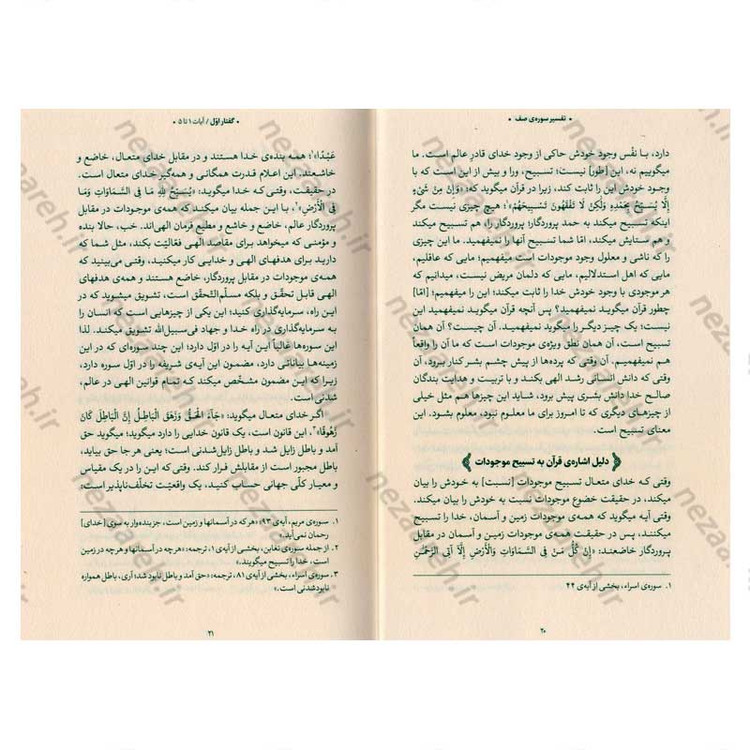 • تفسیر سوره‌ی صف •
دارد، بـا نفْس وجود خودش حاکی از وجود خدای قادرِ عالم است. ما
میگوییم نه، این [طور] نیست؛ تسبیح، ورا و بیش از این است که با
وجـود خودش این را ثابت کند، زیرا در قرآن میگوید که: «وَإِن مِّن شَیءٍ
إِلَّا یُسَبِّحُ بِحَمدِهِ وَلٰکِن لَّا تَفقَهُونَ تَسبیحَهُم»¹؛ هیچ چیزی نیست مگر
اینکه تسبیح میکند به حمد پروردگار؛ پروردگار را، هم تسبیح میکند
و هـم ستایش میکند، امّا شما تسبیح آنها را نمیفهمید. ما این چیزی
را که ناشی و معلول وجود موجودات است میفهمیم؛ مایی که عاقلیم،
مایی که اهل استدلالیم، مایی که دلمان مریض نیست، میدانیم که
هر موجودی با وجود خودش خدا را ثابت میکند؛ این را میفهمیم؛ [امّا]
چطور قرآن میگوید نمیفهمید؟ پس آنچه قرآن میگویـد نمیفهمید، این
نیست؛ یک چیز دیگر را میگوید نمیفهمید. آن چیست؟ آن همان
تسبیح است، آن همان نطق ویژه‌ی موجودات است که ما آن را واقعاً
هـم نمیفهمیـم. آن وقتی که پرده‌ها از پیش چشم بشر کنار برود، آن
وقتی که دانش انسانی رشد الهی بکنـد و با تربیت و هدایت بندگان
صالـح خدا دانش بشری پیش برود، شاید این چیزها هـم مثل خیلی
از چیزهای دیگری که تا امروز برای ما معلوم نبود، معلوم بشود. این
معنای تسبیح است.
دلیل اشاره‌ی قرآن به تسبیح موجودات
وقتی کـه خدای متعـال تسبیح موجودات [نسبت] به خـودش را بیان
میکند، در حقیقت خضوع موجودات نسبت به خودش را بیان میکند.
وقتی آیـه میگوید که همه‌ی موجودات زمین و آسمان، خدا را تسبیح
میکننـد، پس در حقیقت همه‌ی موجودات زمین و آسمان در مقابل
پروردگار خاضعند: «إِن کُلُّ مَن فِی السَّمَاوَاتِ وَالأَرضِ إِلَّا آتِی الرَّحمٰنِ
۱. سوره‌ی اسراء، بخشی از آیه‌ی ۴۴
۲۰
• گفتار اوّل / آیات ۱ تا ۵ •
عَبْدًا»¹؛ همه بنده‌ی خـدا هستند و در مقابل خدای متعـال، خاضع و
خاشعند. این اعلام قدرت همگانی و همه‌گیر خدای متعال است.
در حقیقت، وقتـی کـه خدا میگوید: «یُسَبِّحُ لِلَّهِ مَا فِی السَّمَاوَاتِ وَمَا
فِی الأَرضِ»²، بـا این جمله بیان میکند که همه‌ی موجودات در مقابل
پروردگار عالم، خاضع و خاشع و مطیع فرمان الهی‌اند. خب، حالا بنده
و مؤمنی که میخواهد برای مقاصد الهی فعّالیّت بکند، مثل شما که
دارید برای هدفهای الهی و خدایی کار میکنید، وقتی می‌بینید که
همه‌ی موجودات در مقابل پروردگار، خاضع هستند و همه‌ی هدفهای
الهی قابل تحقّـق و بلکه مسلّم‌التّحقّق است، تشویق میشوید که در
این راه، سرمایه‌گذاری کنید؛ این یکی از چیزهایی است که انسان را
به سرمایه‌گذاری در راه خدا و جهاد فی‌سبیل‌الله تشویق میکند. لذا
این سوره‌ها غالباً این آیـه را در اوّل دارد؛ این چند سوره‌ای که در این
زمینه‌ها بیاناتی دارد، مضمون این آیه‌ی شریفه را در اوّل سوره دارد،
زیـرا که این مضمون مشخّص میکند کـه تمام قوانین الهی در عالم،
شدنی است.
اگـر خدای متعـال میگوید: «جَاءَ الحَقُّ وَزَهَقَ البَاطِلُ إِنَّ البَاطِلَ کَانَ
زَهُوقًا»³، این قانون است، یک قانون خدایی را دارد میگوید؛ میگوید حق
آمد و باطل زایل شـد و باطل زایل‌شدنی است؛ یعنی هر جا حق بیاید،
باطل مجبور است از مقابلش فرار کند. وقتی که این را در یک مقیاس
و معیـار کلّی جهانی حسـاب کنید، یک واقعیّـت تخلّف‌ناپذیر است؛
۱. سوره‌ی مریم، آیه‌ی ۹۳؛ «هر که در آسمانها و زمین است، جز بنده‌وار به سوی [خدای]
رحمان نمی‌آید.»
۲. از جمله سوره‌ی تغابن، بخشی از آیه‌ی ۱، ترجمه: «هر چه در آسمانها و هر چه در زمین
است، خدا را تسبیح میگویند.»
۳. سوره‌ی اسراء، بخشی از آیه‌ی ۸۱، ترجمه: «حق آمد و باطل نابود شد؛ آری، باطل همواره
نابودشدنی است.»
۲۱
nezaareh.ir